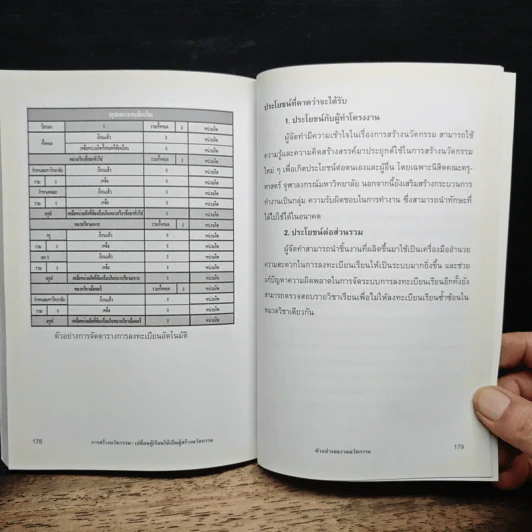 สรุปผลการลงทะเบียนเรียน
วิชาเอก 0 รวมทั้งหมด 0 หน่วยกิต
ทั้งหมด เรียนแล้ว 0 หน่วยกิต
เหลือหน่วยกิตทั้งหมดที่ต้องเรียน 0 หน่วยกิต
หมวดวิชาศึกษาทั่วไป รวมทั้งหมด 0 หน่วยกิต
เรียนแล้ว 0 หน่วยกิต
รวม 0 เหลือ 0 หน่วยกิต
เรียนแล้ว 0 หน่วยกิต
รวม 0 เหลือ 0 หน่วยกิต
สรุป เหลือหน่วยกิตที่ต้องเรียนในหมวดวิชาศึกษาทั่วไป 0 หน่วยกิต
หมวดวิชาเฉพาะ รวมทั้งหมด 0 หน่วยกิต
ครู เรียนแล้ว 0 หน่วยกิต
รวม 0 เหลือ 0 หน่วยกิต
เอก เรียนแล้ว 0 หน่วยกิต
รวม 0 เหลือ 0 หน่วยกิต
สรุป เหลือหน่วยกิตที่ต้องเรียนในหมวดวิชาเฉพาะ 0 หน่วยกิต
หมวดวิชาเลือกเสรี รวมทั้งหมด 0 หน่วยกิต
เรียนแล้ว 0 หน่วยกิต
รวม 0 เหลือ 0 หน่วยกิต
สรุป เหลือหน่วยกิตที่ต้องเรียนในหมวดวิชาเลือกเสรี 0 หน่วยกิต
ตัวอย่างการจัดตารางการลงทะเบียนอัตโนมัติ
178 การสร้างนวัตกรรม : เปลี่ยนผู้เรียนให้เป็นผู้สร้างนวัตกรรม
ประโยชน์ที่คาดว่าจะได้รับ
1. ประโยชน์กับผู้ทำโครงงาน
ผู้จัดทำมีความเข้าใจในเรื่องการสร้างนวัตกรรม สามารถใช้
ความรู้และความคิดสร้างสรรค์มาประยุกต์ใช้ในการสร้างนวัตกรรม
ใหม่ ๆ เพื่อเกิดประโยชน์ต่อตนเองและผู้อื่น โดยเฉพาะนิสิตคณะครุ-
ศาสตร์ จุฬาลงกรณ์มหาวิทยาลัย นอกจากนี้ยังเสริมสร้างกระบวนการ
ทำงานเป็นกลุ่ม ความรับผิดชอบในการทำงาน ซึ่งสามารถนำทักษะที่
ได้ไปใช้ได้ในอนาคต
2. ประโยชน์ต่อส่วนรวม
ผู้จัดทำสามารถนำชิ้นงานที่ผลิตขึ้นมาใช้เป็นเครื่องมืออำนวย
ความสะดวกในการลงทะเบียนเรียนให้เป็นระบบมากยิ่งขึ้น และช่วย
แก้ปัญหาความผิดพลาดในการจัดระบบการลงทะเบียนเรียนอีกทั้งยัง
สามารถตรวจสอบรายวิชาเรียนเพื่อไม่ให้ลงทะเบียนเรียนซ้ำซ้อนใน
หมวดวิชาเดียวกัน
ตัวอย่างผลงานนวัตกรรม 179